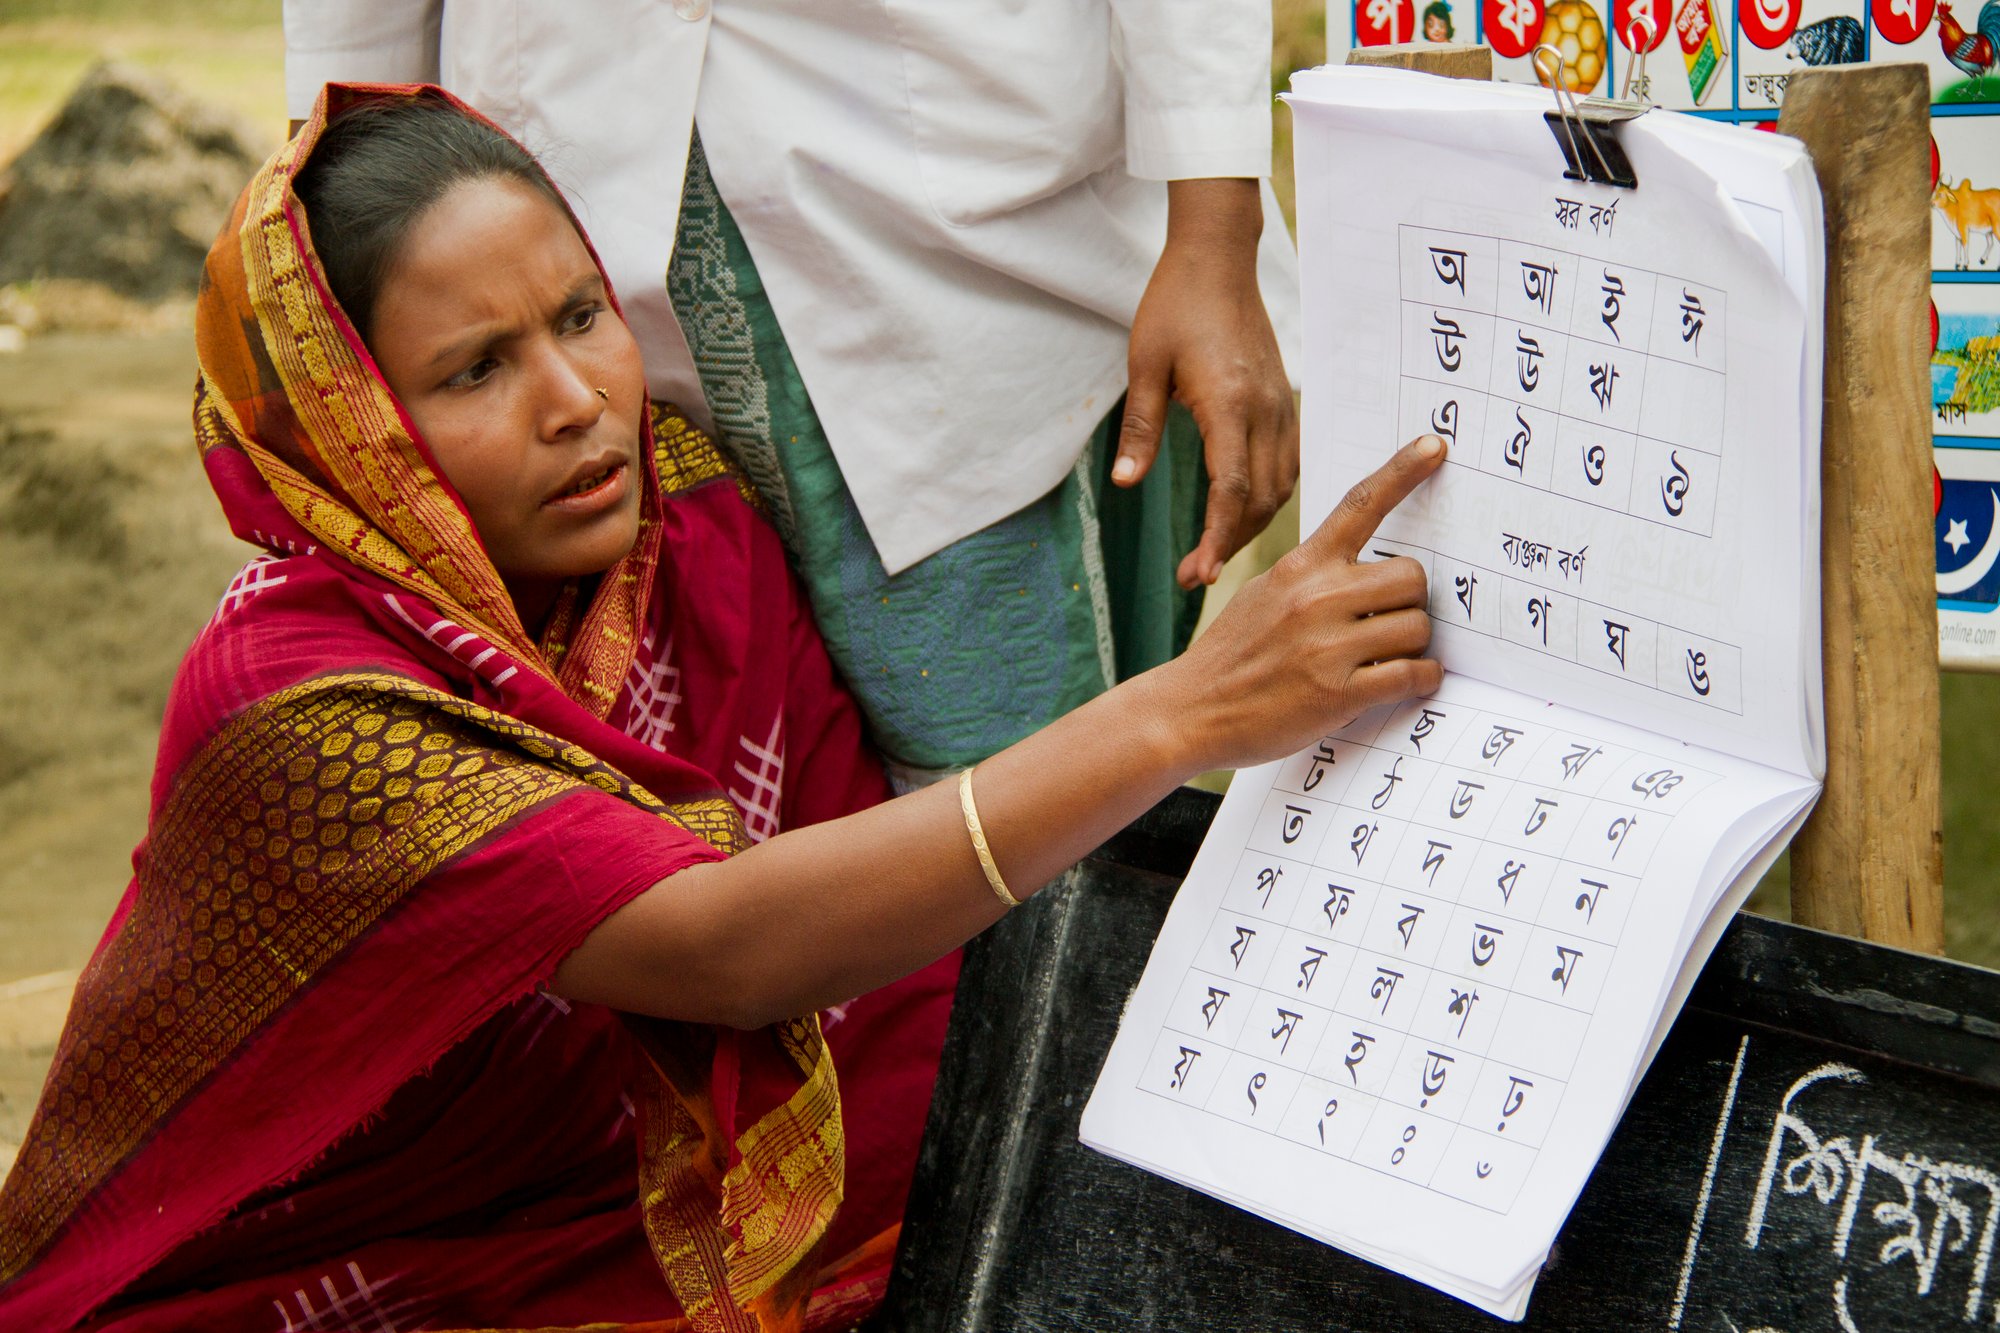 প ফ ব ভ ম
বই ভাল্লুক
স্বর বর্ণ
অ আ ই ঈ
উ ঊ ঋ
এ ঐ ও ঔ
ব্যঞ্জন বর্ণ
খ গ ঘ ঙ
ছ জ ঝ ঞ
ট ঠ ড ঢ ণ
ত থ দ ধ ন
প ফ ব ভ ম
য র ল শ
ষ স হ ড় ঢ়
য় ৎ ং ঃ ঁ
-online.com